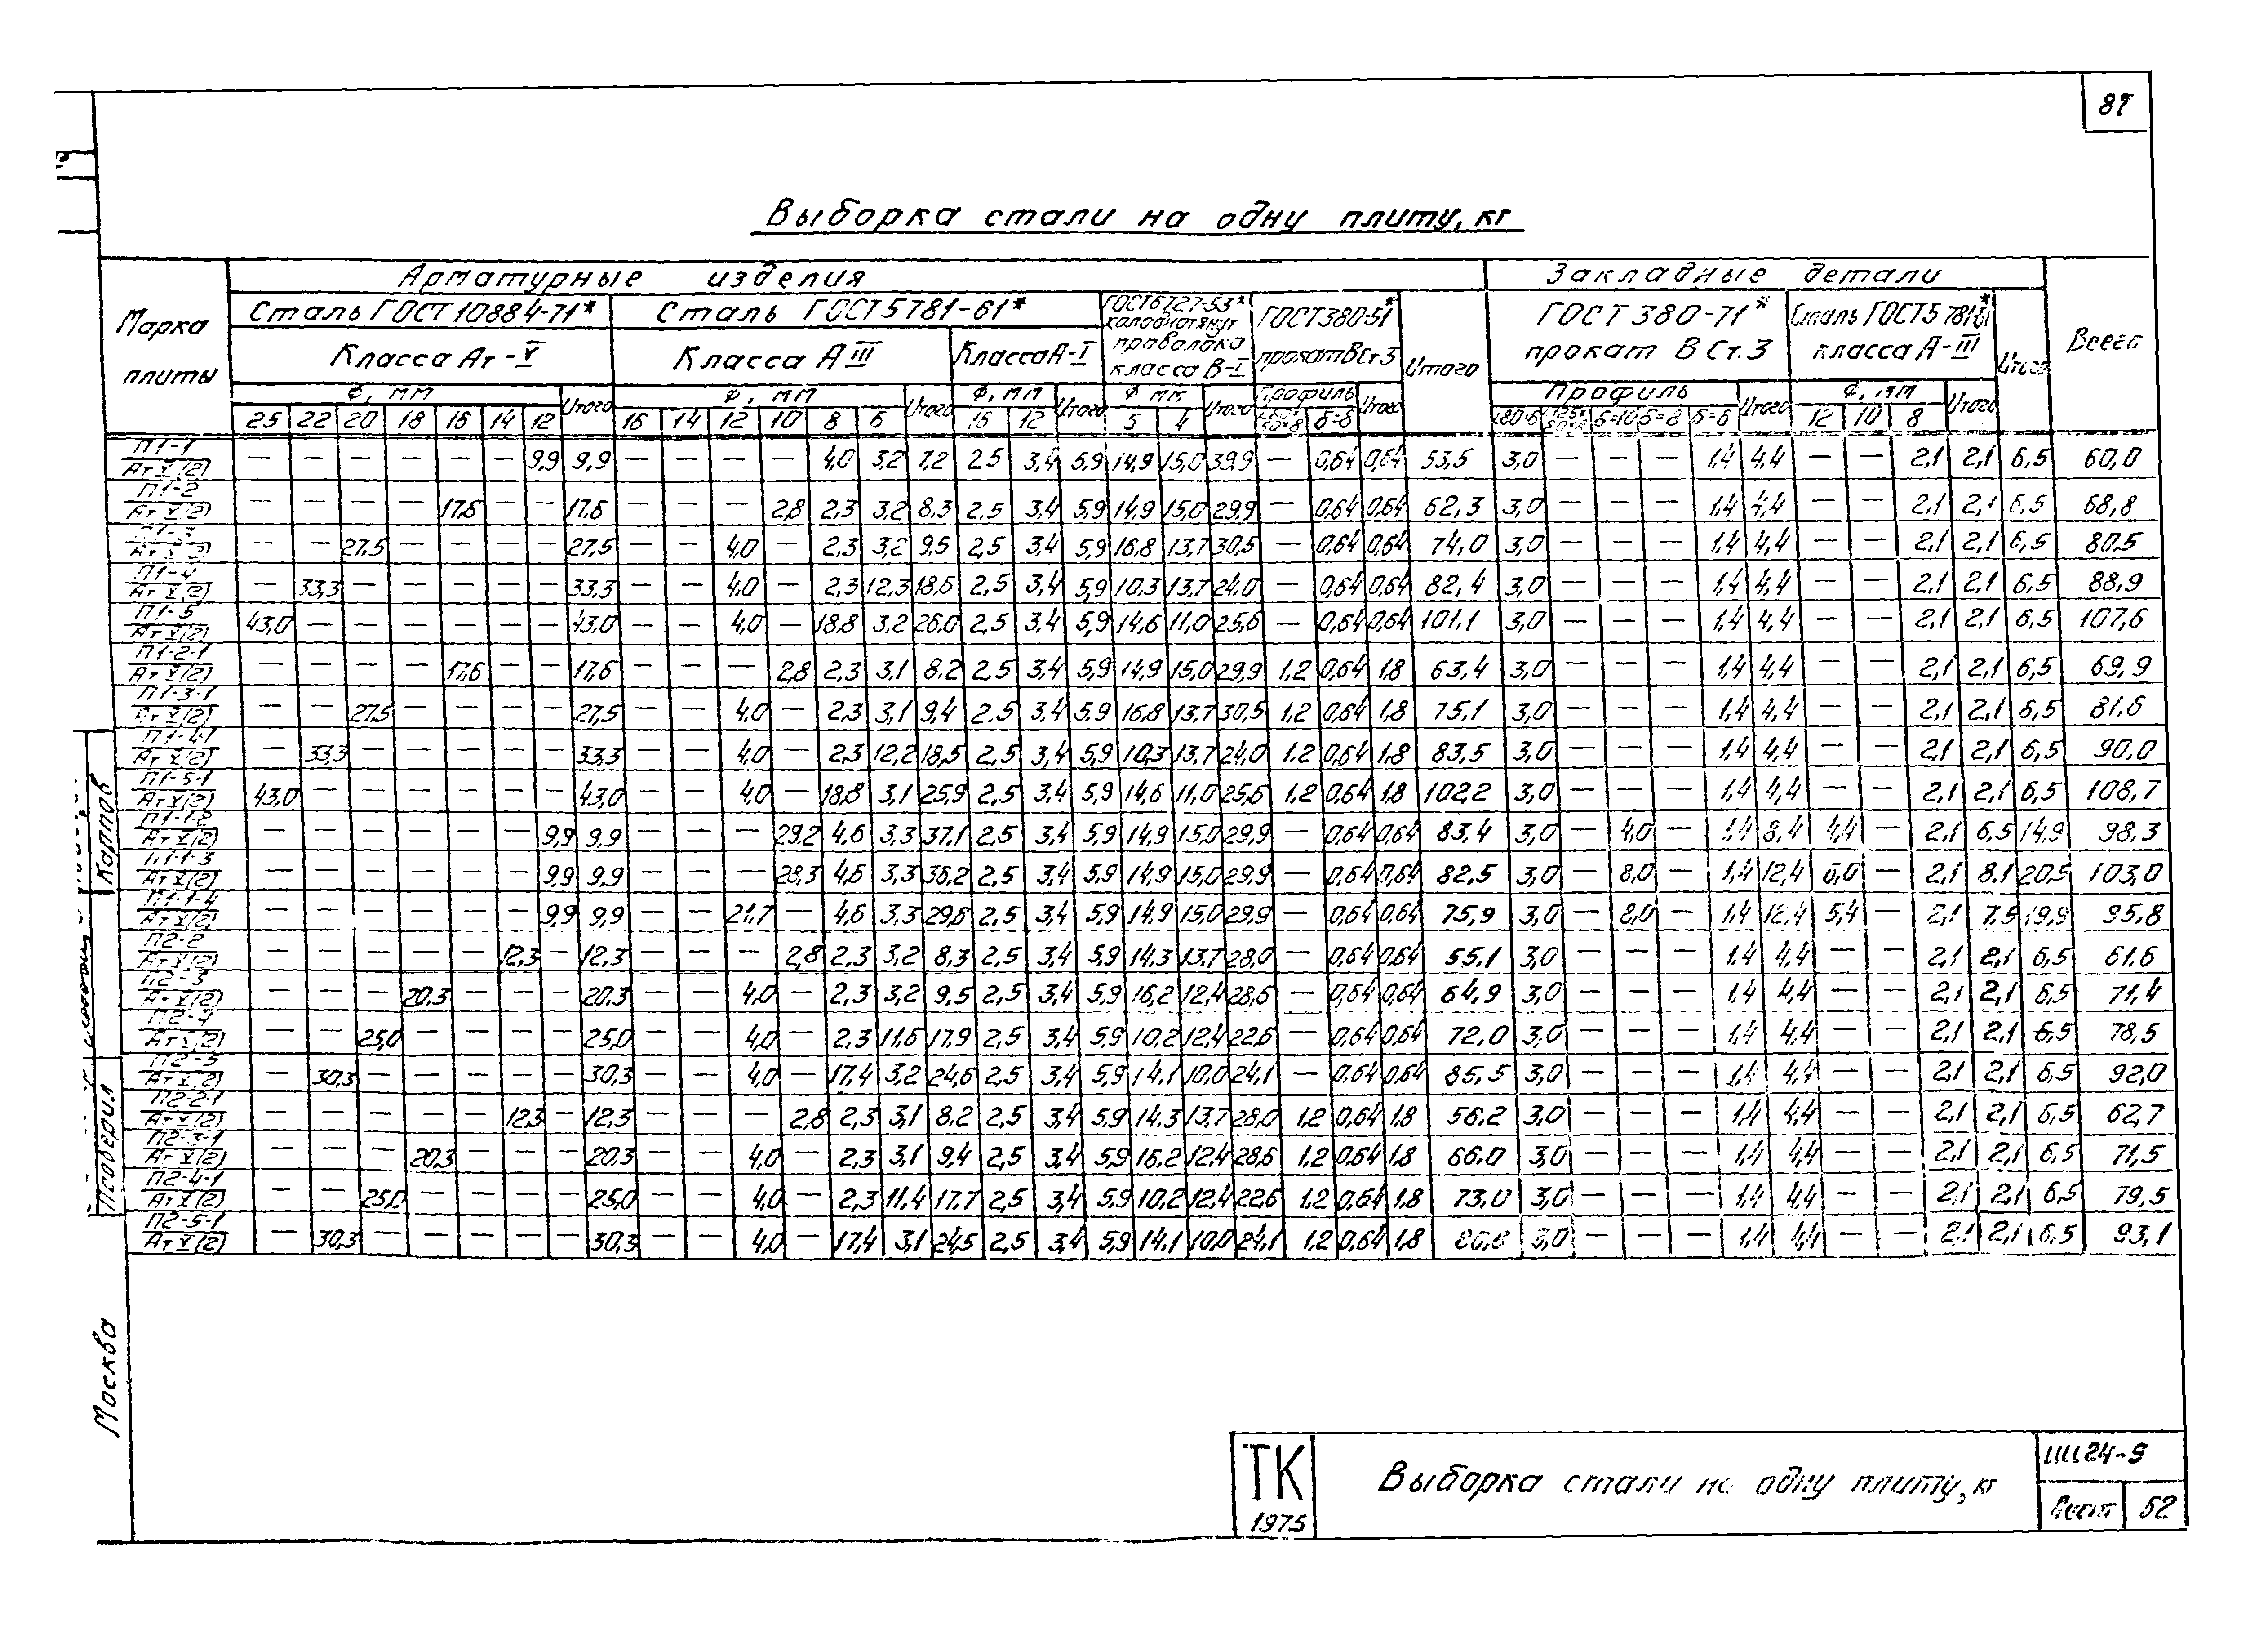 87
Выборка стали на одну плиту, кг
Марка плиты
Арматурные изделия
Закладные детали
Всего
Сталь ГОСТ 10884-71*
Сталь ГОСТ 5781-61*
ГОСТ 6727-53* холоднотянут проволока класса В-I
ГОСТ 380-51* прокат ВСт3
Итого
ГОСТ 380-71* прокат В Ст.3
Сталь ГОСТ 5781-61* класса А-III
Итого
Класса Ат-V
Класса А III
Класса А-I
Ф, мм Итого Ф, мм Итого Ф, мм Итого Ф мм Итого Профиль Итого Профиль Итого Ф, мм Итого
25 22 20 18 16 14 12 16 14 12 10 8 6 16 12 5 4 δ=8 δ=10 δ=8 δ=6 12 10 8
П1-1 Ат V (2) — — — — — — 9,9 9,9 — — — — 4,0 3,2 7,2 2,5 3,4 5,9 14,9 15,0 39,9 — 0,64 0,64 53,5 3,0 — — — 1,4 4,4 — — 2,1 2,1 6,5 60,0
П1-2 Ат V (2) — — — — 17,6 — — 17,6 — — — 2,8 2,3 3,2 8,3 2,5 3,4 5,9 14,9 15,0 29,9 — 0,64 0,64 62,3 3,0 — — — 1,4 4,4 — — 2,1 2,1 6,5 68,8
П1-3 Ат V (2) — — 27,5 — — — — 27,5 — — 4,0 — 2,3 3,2 9,5 2,5 3,4 5,9 16,8 13,7 30,5 — 0,64 0,64 74,0 3,0 — — — 1,4 4,4 — — 2,1 2,1 6,5 80,5
П1-4 Ат V (2) — 33,3 — — — — — 33,3 — — 4,0 — 2,3 12,3 18,6 2,5 3,4 5,9 10,3 13,7 24,0 — 0,64 0,64 82,4 3,0 — — — 1,4 4,4 — — 2,1 2,1 6,5 88,9
П1-5 Ат V (2) 43,0 — — — — — — 43,0 — — 4,0 — 18,8 3,2 26,0 2,5 3,4 5,9 14,6 11,0 25,6 — 0,64 0,64 101,1 3,0 — — — 1,4 4,4 — — 2,1 2,1 6,5 107,6
П1-2-1 Ат V (2) — — — — 17,6 — — 17,6 — — — 2,8 2,3 3,1 8,2 2,5 3,4 5,9 14,9 15,0 29,9 1,2 0,64 1,8 63,4 3,0 — — — 1,4 4,4 — — 2,1 2,1 6,5 69,9
П1-3-1 Ат V (2) — — 27,5 — — — — 27,5 — — 4,0 — 2,3 3,1 9,4 2,5 3,4 5,9 16,8 13,7 30,5 1,2 0,64 1,8 75,1 3,0 — — — 1,4 4,4 — — 2,1 2,1 6,5 81,6
П1-4-1 Ат V (2) — 33,3 — — — — — 33,3 — — 4,0 — 2,3 12,2 18,5 2,5 3,4 5,9 10,3 13,7 24,0 1,2 0,64 1,8 83,5 3,0 — — — 1,4 4,4 — — 2,1 2,1 6,5 90,0
П1-5-1 Ат V (2) 43,0 — — — — — — 43,0 — — 4,0 — 18,8 3,1 25,9 2,5 3,4 5,9 14,6 11,0 25,6 1,2 0,64 1,8 102,2 3,0 — — — 1,4 4,4 — — 2,1 2,1 6,5 108,7
П1-1-2 Ат V (2) — — — — — — 9,9 9,9 — — — 29,2 4,6 3,3 37,1 2,5 3,4 5,9 14,9 15,0 29,9 — 0,64 0,64 83,4 3,0 — 4,0 — 1,4 8,4 4,4 — 2,1 6,5 14,9 98,3
П1-1-3 Ат V (2) — — — — — — 9,9 9,9 — — — 28,3 4,6 3,3 36,2 2,5 3,4 5,9 14,9 15,0 29,9 — 0,64 0,64 82,5 3,0 — 8,0 — 1,4 12,4 6,0 — 2,1 8,1 20,5 103,0
П1-1-4 Ат V (2) — — — — — — 9,9 9,9 — — 21,7 — 4,6 3,3 29,6 2,5 3,4 5,9 14,9 15,0 29,9 — 0,64 0,64 75,9 3,0 — 8,0 — 1,4 12,4 5,4 — 2,1 7,5 19,9 95,8
П2-2 Ат V (2) — — — — — 12,3 — 12,3 — — — 2,8 2,3 3,2 8,3 2,5 3,4 5,9 14,3 13,7 28,0 — 0,64 0,64 55,1 3,0 — — — 1,4 4,4 — — 2,1 2,1 6,5 61,6
П2-3 Ат V (2) — — — 20,3 — — — 20,3 — — 4,0 — 2,3 3,2 9,5 2,5 3,4 5,9 16,2 12,4 28,6 — 0,64 0,64 64,9 3,0 — — — 1,4 4,4 — — 2,1 2,1 6,5 71,4
П2-4 Ат V (2) — — 25,0 — — — — 25,0 — — 4,0 — 2,3 11,6 17,9 2,5 3,4 5,9 10,2 12,4 22,6 — 0,64 0,64 72,0 3,0 — — — 1,4 4,4 — — 2,1 2,1 6,5 78,5
П2-5 Ат V (2) — 30,3 — — — — — 30,3 — — 4,0 — 17,4 3,2 24,6 2,5 3,4 5,9 14,1 10,0 24,1 — 0,64 0,64 85,5 3,0 — — — 1,4 4,4 — — 2,1 2,1 6,5 92,0
П2-2-1 Ат V (2) — — — — — 12,3 — 12,3 — — — 2,8 2,3 3,1 8,2 2,5 3,4 5,9 14,3 13,7 28,0 1,2 0,64 1,8 56,2 3,0 — — — 1,4 4,4 — — 2,1 2,1 6,5 62,7
П2-3-1 Ат V (2) — — — 20,3 — — — 20,3 — — 4,0 — 2,3 3,1 9,4 2,5 3,4 5,9 16,2 12,4 28,6 1,2 0,64 1,8 66,0 3,0 — — — 1,4 4,4 — — 2,1 2,1 6,5 71,5
П2-4-1 Ат V (2) — — 25,0 — — — — 25,0 — — 4,0 — 2,3 11,4 17,7 2,5 3,4 5,9 10,2 12,4 22,6 1,2 0,64 1,8 73,0 3,0 — — — 1,4 4,4 — — 2,1 2,1 6,5 79,5
П2-5-1 Ат V (2) — 30,3 — — — — — 30,3 — — 4,0 — 17,4 3,1 24,5 2,5 3,4 5,9 14,1 10,0 24,1 1,2 0,64 1,8 86,6 3,0 — — — 1,4 4,4 — — 2,1 2,1 6,5 93,1
Карпов
Проверил
Москва
ТК
1975
Выборка стали на одну плиту, кг
ИИ24-9
Лист 62